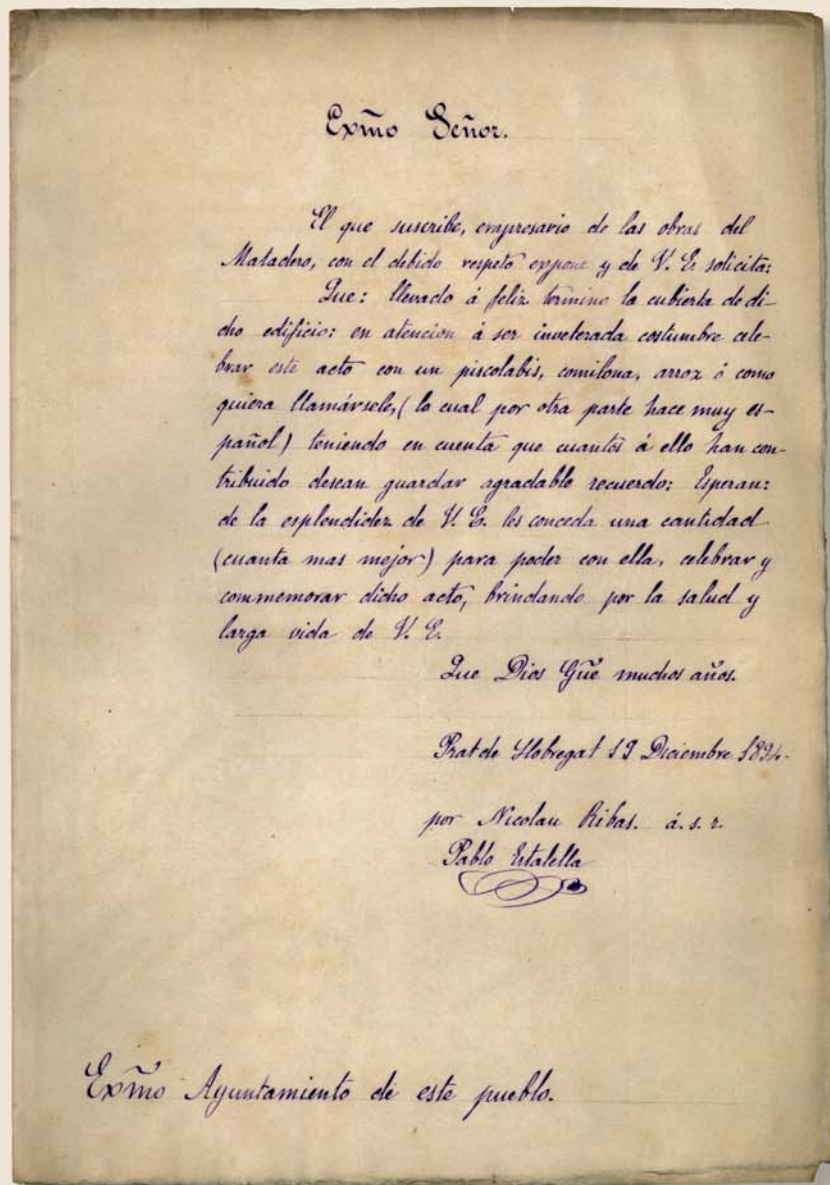 Exm̃o Señor.
El que suscribe, empresario de las obras del
Matadero, con el debido respeto expone y de V. E. solicita:
Que: llevado á feliz termino la cubierta de di-
cho edificio: en atencion á ser inveterada costumbre cele-
brar este acto con un piscolabis, comilona, arroz ó como
quiera llamársele, (lo cual por otra parte hace muy es-
pañol) teniendo en cuenta que cuantos á ello han con-
tribuido desean guardar agradable recuerdo: Esperan:
de la esplendidez de V. E. les conceda una cantidad
(cuanta mas mejor) para poder con ella, celebrar y
commemorar dicho acto, brindando por la salud y
larga vida de V. E.
Que Dios Gũe muchos años.
Prat de Llobregat 19 Diciembre 1894.
por Nicolau Ribas. á. s. r.
Pablo Estalella
Exm̃o Ayuntamiento de este pueblo.